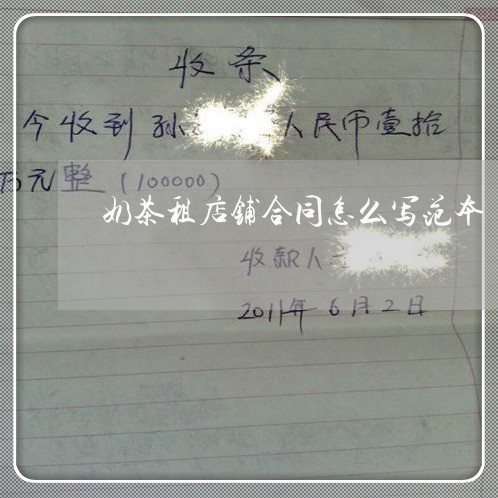 收条
今收到孙 人民币壹拾
万元整（100000）
奶茶租店铺合同怎么写范本
收款人
2011年6月2日